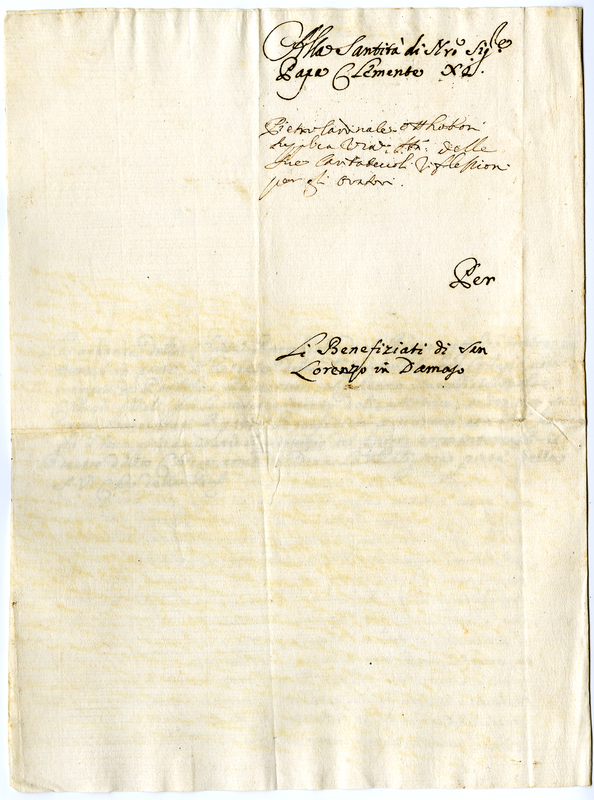 Alla Santità di Nro Sig.re
Papa Clemente XI.
Pietro Cardinale Otthoboni
supplica Vra. Stà. delle
sue
per gli Oratori.
Per
Li Benefiziati di San
Lorenzo in Damaso